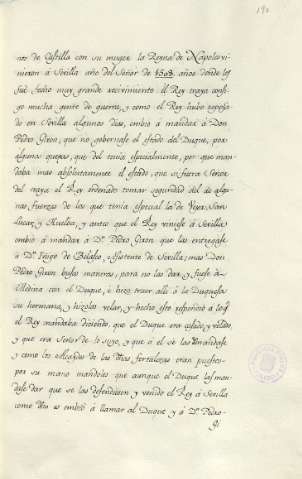 nos de Castilla con su muger la Reyna de Napoles vi-
nieron á Sevilla año del Señor de 1508. años donde les
fué fecho muy grande recivimiento el Rey traya consi-
go mucha gente de guerra, y como el Rey hubo reposa-
do en Sevilla algunos dias, embió á mandar á Don
Pedro Giron, que no gobernase el estado del Duque, por
algunas quejas, que del tenia especialmente, por que man-
daba mas absolutamente el estado, que si fuera Señor
del
el Rey ordenado, tomar seguridad del de algu-
nas fuerzas de las que tenia especial la de Vejer, San-
lucar, y Huelva, y antes que el Rey viniese á Sevilla
embió á mandar á Dn. Pedro Giron que las entregase
á Dn. Iñigo de Belasco Asistente de Sevilla; mas Don
Pedro Giron buscó maneras, para no las dar y fuese á
Medina con el Duque, é hizo traer alli á la Duquesa
su hermana, y hizolos velar, y hecho esto respondió á lo q.
el Rey mandaba diciendo, que el Duque era casado, y velado,
y que era Señor de lo suyo, y que á él se las demandase
y como los Alcaides de las dhas fortalezas eran puestos
por su mano mandoles que aunque el Duque las man-
dase dar que se las defendiesen y venido el Rey á Sevilla
como dho es embió á llamar al Duque y á Dn. Pedro
Gi